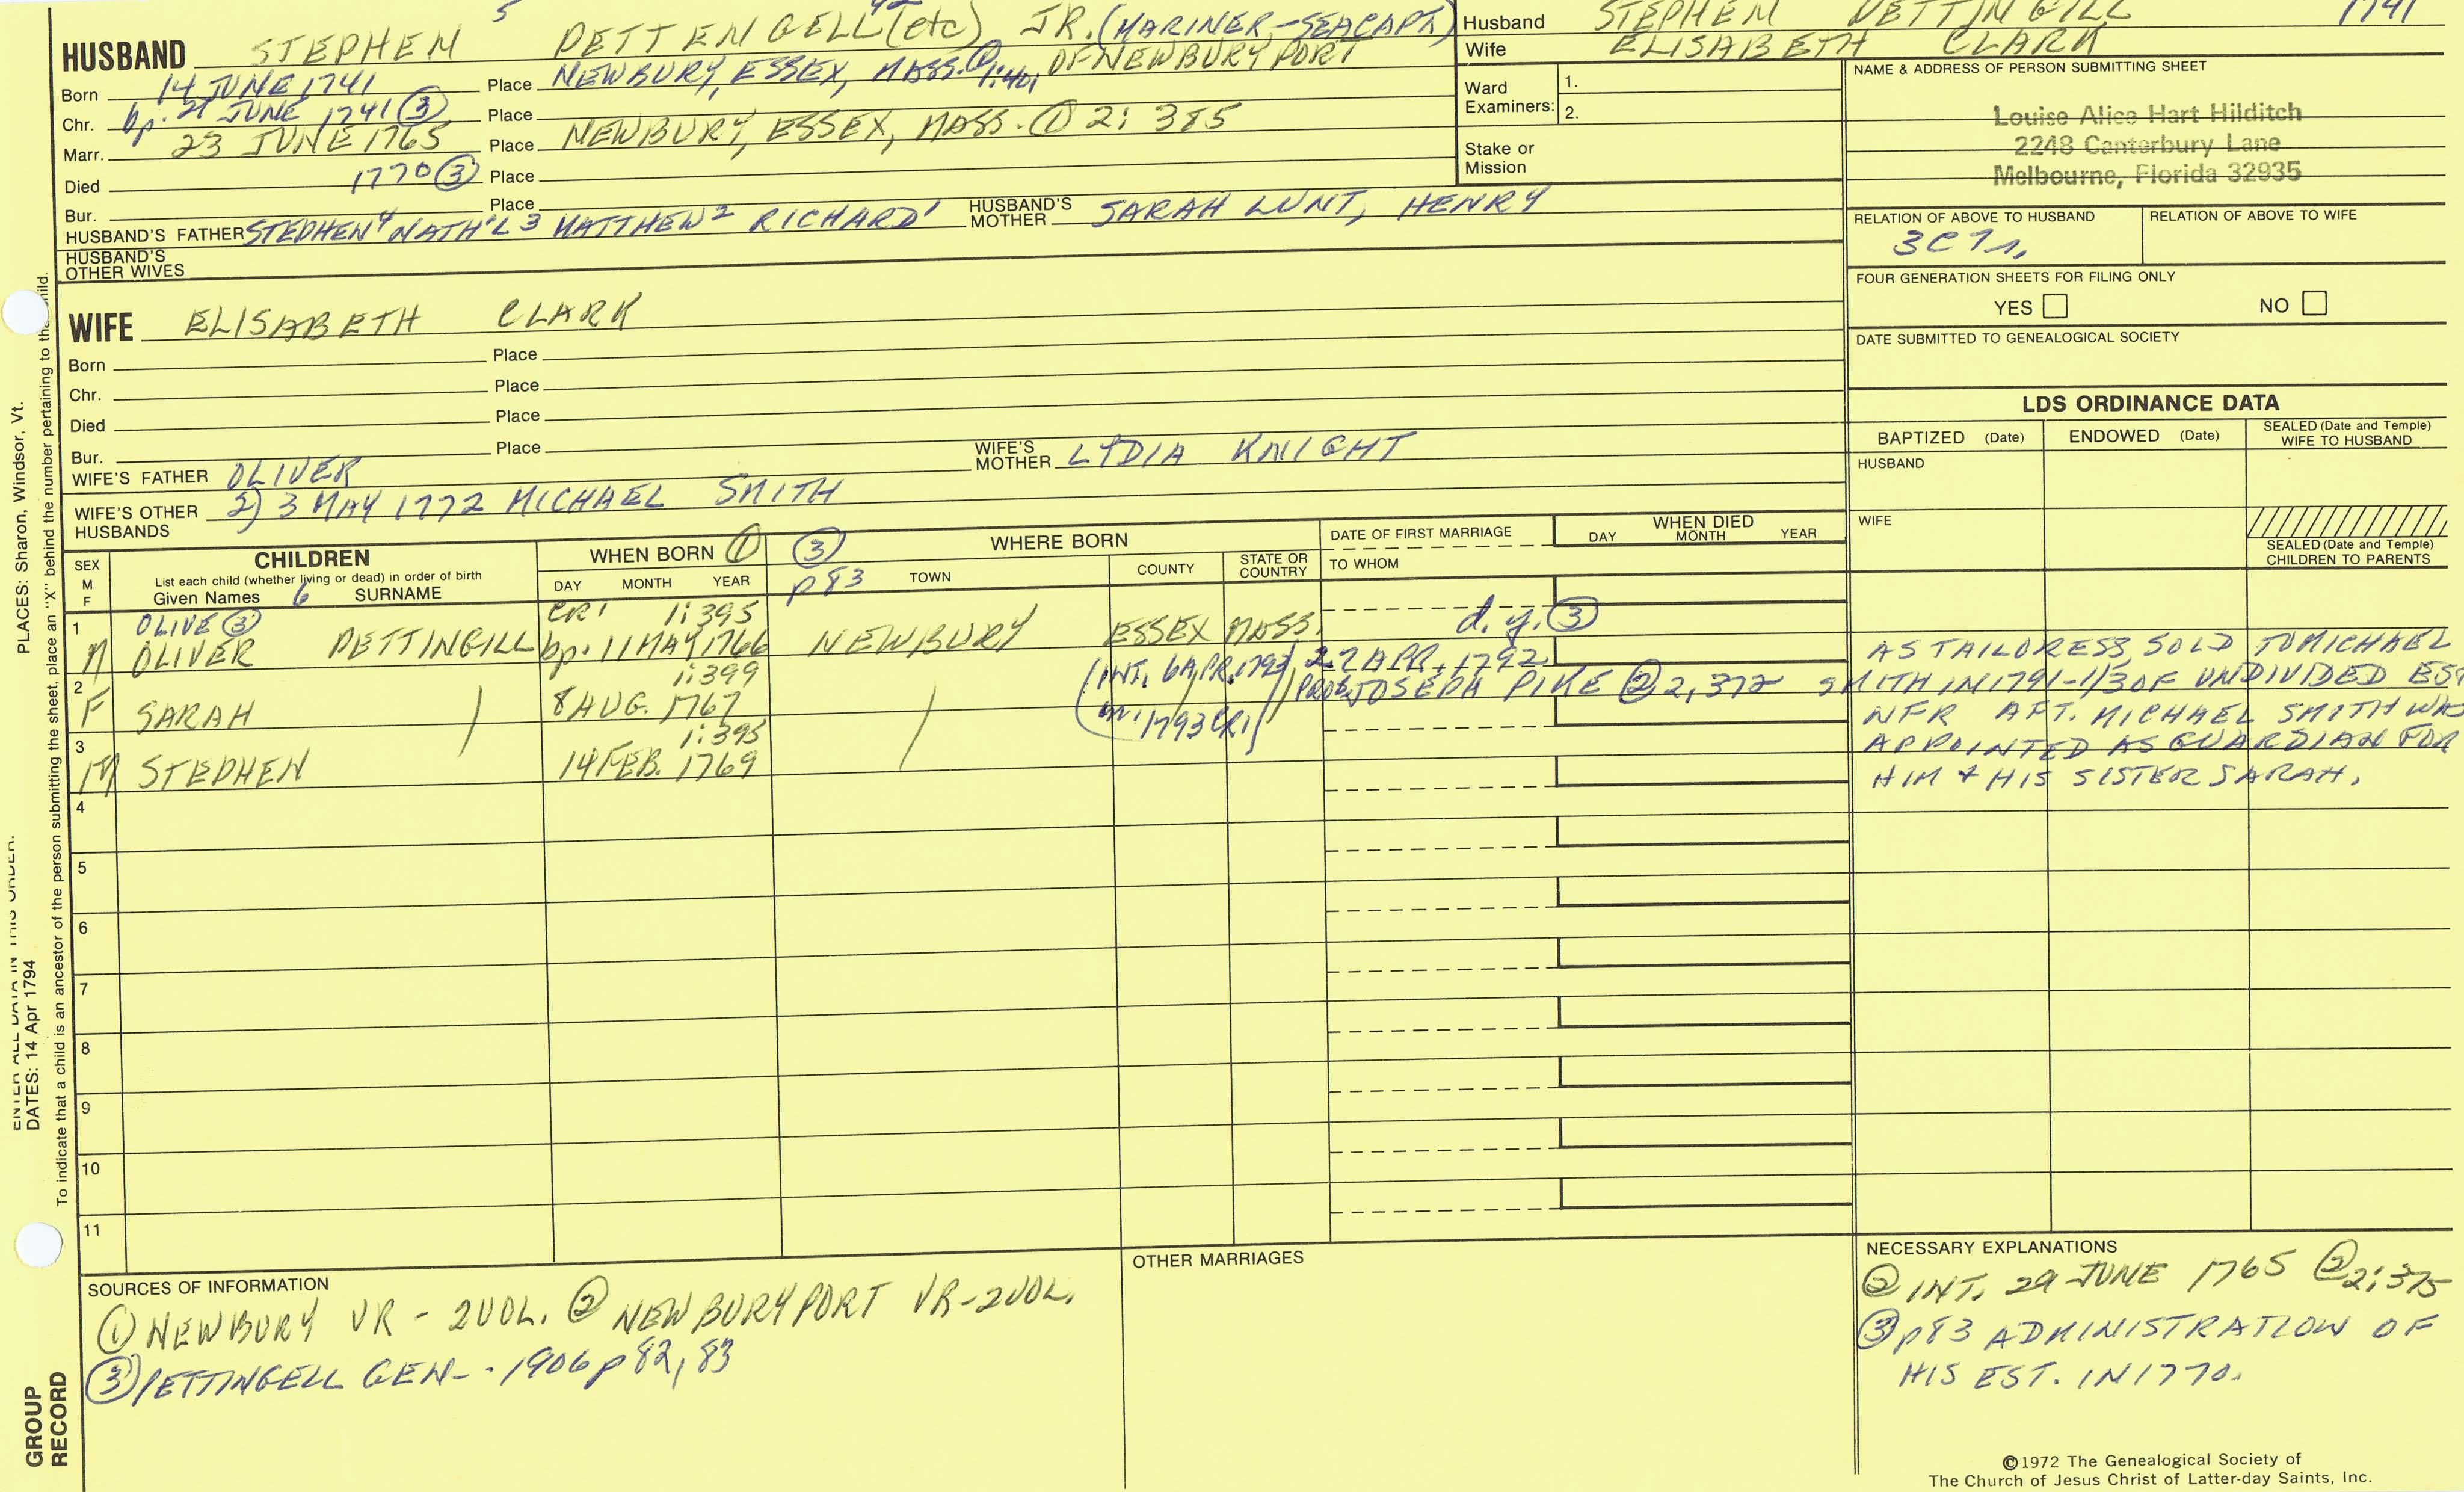 HUSBAND STEPHEN 5 PETTENGELL (etc) JR. (MARINER - SEACAPT)
Born 14 JUNE 1741 Place NEWBURY, ESSEX, MASS. ① 1:401 OF NEWBURYPORT
Chr. bp. 21 JUNE 1741 ③ Place
Marr. 23 JUNE 1765 Place NEWBURY, ESSEX, MASS. ① 2: 385
Died 1770 ③ Place
Bur. Place
HUSBAND'S FATHER STEPHEN 4 NATH'L 3 MATTHEW 2 RICHARD 1 HUSBAND'S MOTHER SARAH LUNT, HENRY
HUSBAND'S OTHER WIVES
Husband STEPHEN PETTINGILL 1741
Wife ELISABETH CLARK
Ward Examiners: 1.
2.
Stake or Mission
NAME & ADDRESS OF PERSON SUBMITTING SHEET
Louise Alice Hart Hilditch
2248 Canterbury Lane
Melbourne, Florida 32935
RELATION OF ABOVE TO HUSBAND RELATION OF ABOVE TO WIFE
3C7r,
FOUR GENERATION SHEETS FOR FILING ONLY
YES NO
DATE SUBMITTED TO GENEALOGICAL SOCIETY
WIFE ELISABETH CLARK
Born Place
Chr. Place
Died Place
Bur. Place
WIFE'S FATHER OLIVER WIFE'S MOTHER LYDIA KNIGHT
WIFE'S OTHER HUSBANDS 2) 3 MAY 1772 MICHAEL SMITH
LDS ORDINANCE DATA
BAPTIZED (Date) ENDOWED (Date) SEALED (Date and Temple) WIFE TO HUSBAND
HUSBAND
WIFE
SEALED (Date and Temple) CHILDREN TO PARENTS
SEX M F
CHILDREN
List each child (whether living or dead) in order of birth
Given Names 6 SURNAME
WHEN BORN ①
DAY MONTH YEAR
③ p83 WHERE BORN
TOWN COUNTY STATE OR COUNTRY
DATE OF FIRST MARRIAGE
TO WHOM
WHEN DIED
DAY MONTH YEAR
1 OLIVE ③ CR1 1:395 d.y. ③
M OLIVER PETTINGILL bp. 11 MAY 1766 NEWBURY ESSEX MASS.
2 1:399 (INT. 6 APR. 1792) 27 APR. 1792 AS TAILORESS, SOLD TO MICHAEL
F SARAH 8 AUG. 1767 (m. 1793 CR1) JOSEPH PIKE ② 2,372 SMITH IN 1791 - 1/3 OF UNDIVIDED EST
3 1:395 NFR AFT. MICHAEL SMITH WAS
M STEPHEN 14 FEB. 1769 APPOINTED AS GUARDIAN FOR
HIM & HIS SISTER SARAH.
4
5
6
7
8
9
10
11
SOURCES OF INFORMATION
① NEWBURY VR - 2VOL. ② NEWBURYPORT VR - 2VOL.
③ PETTINGELL GEN - 1906 p 82, 83
OTHER MARRIAGES
NECESSARY EXPLANATIONS
② INT. 29 JUNE 1765 ② 2:375
③ p83 ADMINISTRATION OF
HIS EST. IN 1770.
©1972 The Genealogical Society of
The Church of Jesus Christ of Latter-day Saints, Inc.
ENTER ALL DATA IN THIS ORDER:
DATES: 14 Apr 1794
PLACES: Sharon, Windsor, Vt.
To indicate that a child is an ancestor of the person submitting the sheet, place an "X" behind the number pertaining to the child.
GROUP RECORD